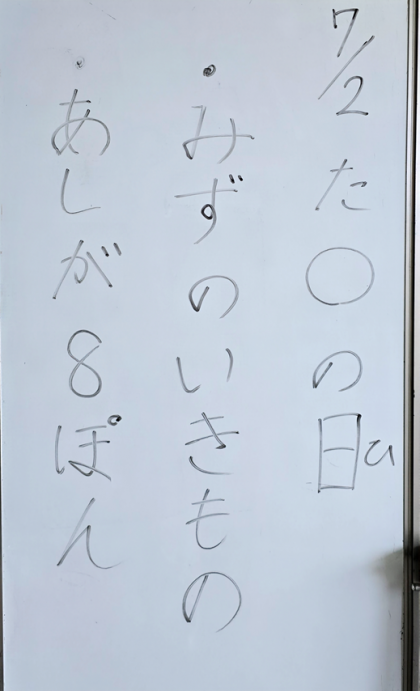 7/2 た○の日ひ
・みずのいきもの
・あしが8ぽん